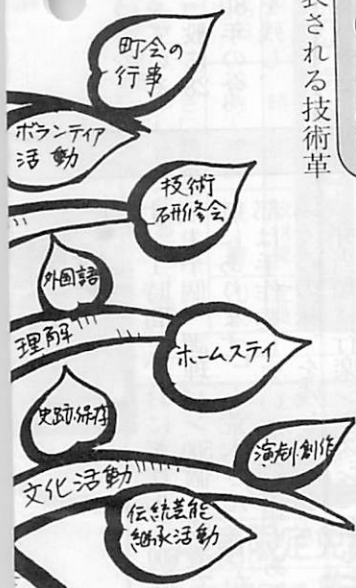 表される技術革
町会の
行事
ボランティア
活動
技術
研修会
外国語
理解
ホームステイ
史跡保存
演劇創作
文化活動
伝統芸能
継承活動